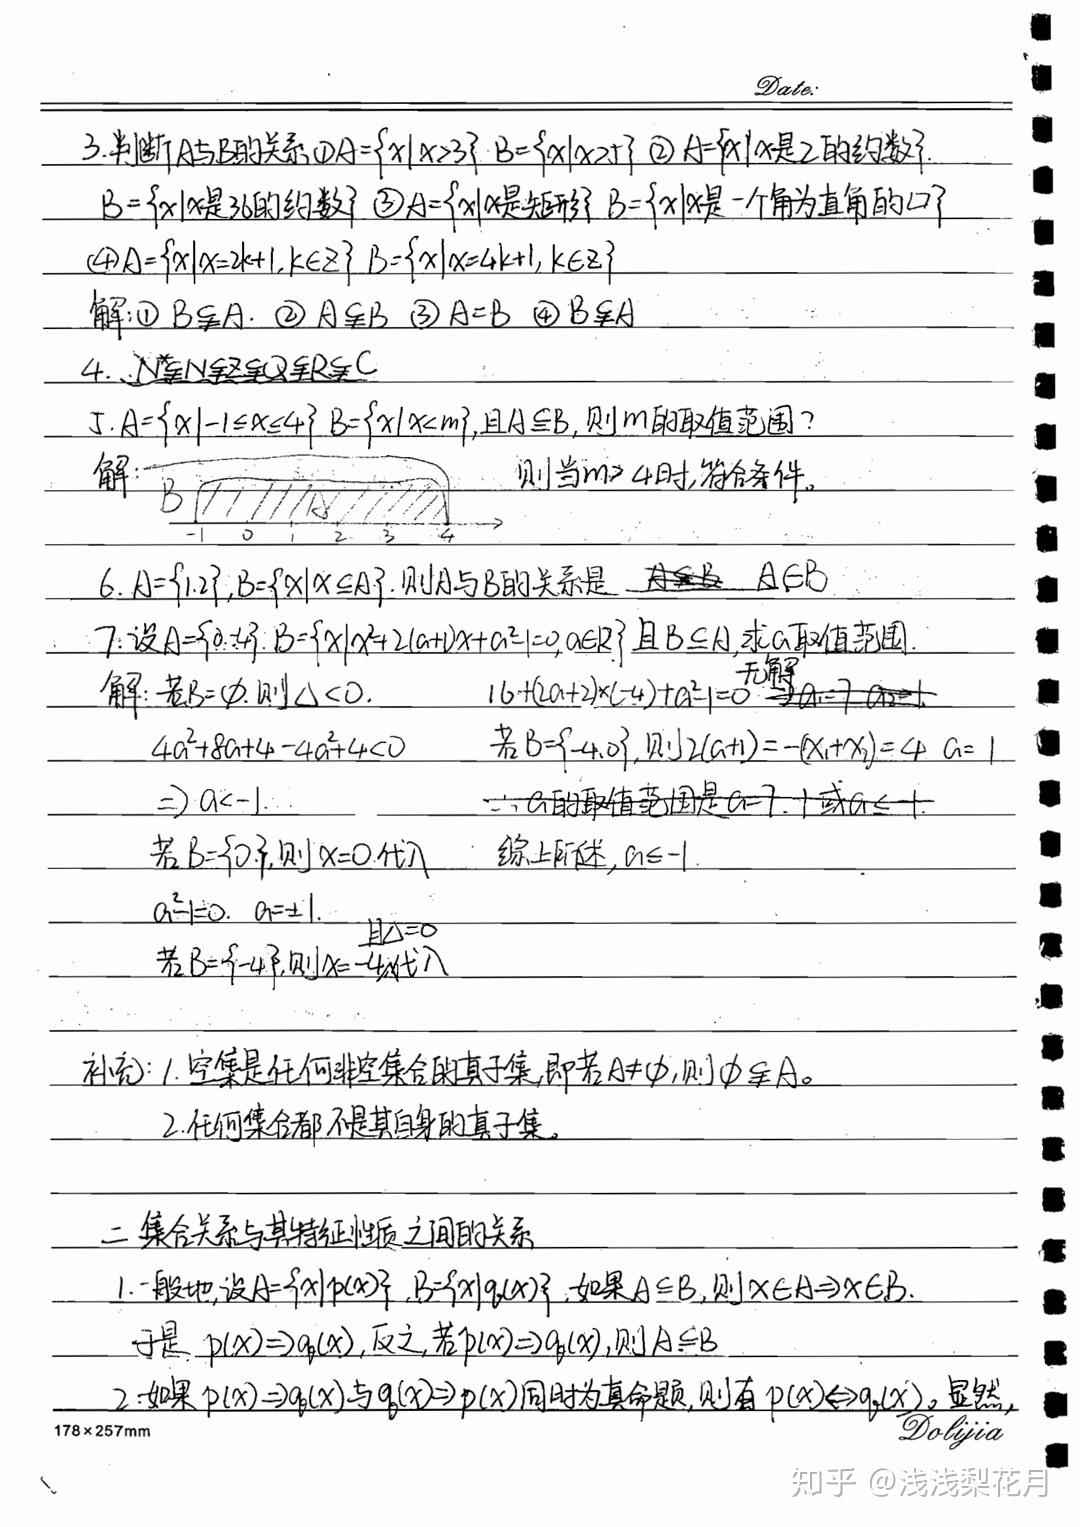 Date:
3.判断A与B的关系①A={x|x>3} B={x|x>5} ②A={x|x是2的约数}.
B={x|x是36的约数} ③A={x|x是矩形} B={x|x是一个角为直角的▱}
④A={x|x=2k+1,k∈Z} B={x|x=4k+1,k∈Z}
解:① B⫋A. ② A⫋B ③ A=B ④ B⫋A
4. N*⫋N⫋Z⫋Q⫋R⫋C
5.A={x|-1≤x≤4} B={x|x<m},且A⊆B,则m的取值范围?
解: 则当m>4时,符合条件。
B A
-1 0 1 2 3 4
6.A={1.2},B={x|x⊆A}.则A与B的关系是 A⊆B A∈B
7.设A={0.-4}.B={x|x²+2(a+1)x+a²-1=0,a∈R}且B⊆A,求a取值范围.
解:若B=∅.则△<0.
4a²+8a+4-4a²+4<0
=>a<-1.
若B={0},则x=0.代入
a²-1=0. a=±1.
且△=0
若B={-4},则x=-4代入
无解
16+(2a+2)×(-4)+a²-1=0 => a₁=7 a₂=1
若B={-4.0},则2(a+1)=-(x₁+x₂)=4 a=1
∴a的取值范围是a=7.1或a≤-1
综上所述,a≤-1.
补充:1.空集是任何非空集合的真子集,即若A≠∅,则∅⫋A。
2.任何集合都不是其自身的真子集。
二 集合关系与其特征性质之间的关系
1.一般地,设A={x|p(x)},B={x|q(x)}.如果A⊆B,则x∈A=>x∈B.
于是 p(x)=>q(x),反之,若p(x)=>q(x),则A⊆B
2.如果p(x)=>q(x)与q(x)=>p(x)同时为真命题,则有p(x)<=>q(x)。显然,
178×257mm
Dolijia
知乎 @浅浅梨花月